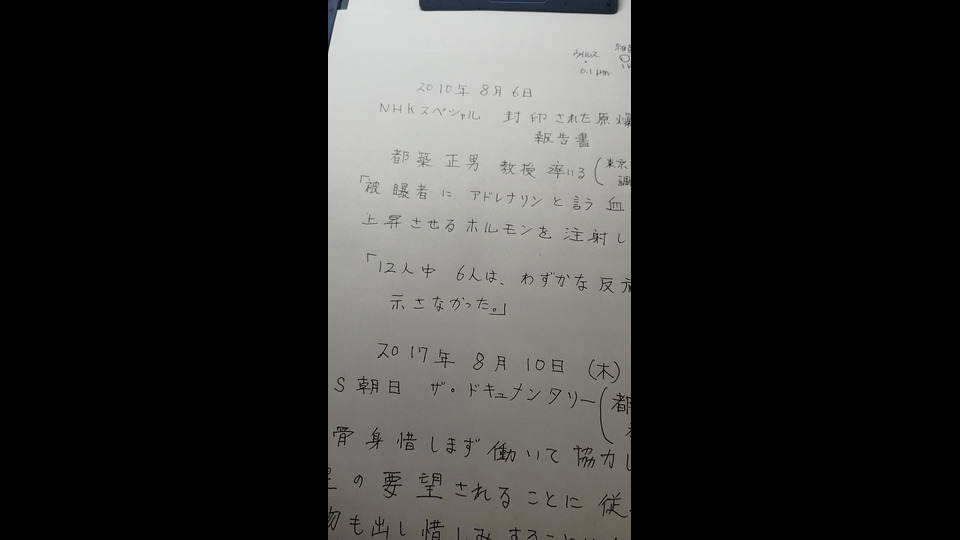 ウイルス
0.1μm
2010年 8月 6日
NHKスペシャル 封印された原爆
報告書
都築 正男 教授 率いる(東京
調
「被曝者に アドレナリンと言う 血
上昇させるホルモンを 注射し
「12人中 6人は、わずかな反応
示さなかった。」
2017年 8月 10日 (木)
S朝日 ザ・ドキュメンタリー(都
骨身惜しまず働いて協力し
の要望されることに従
物も出し惜しみすることは